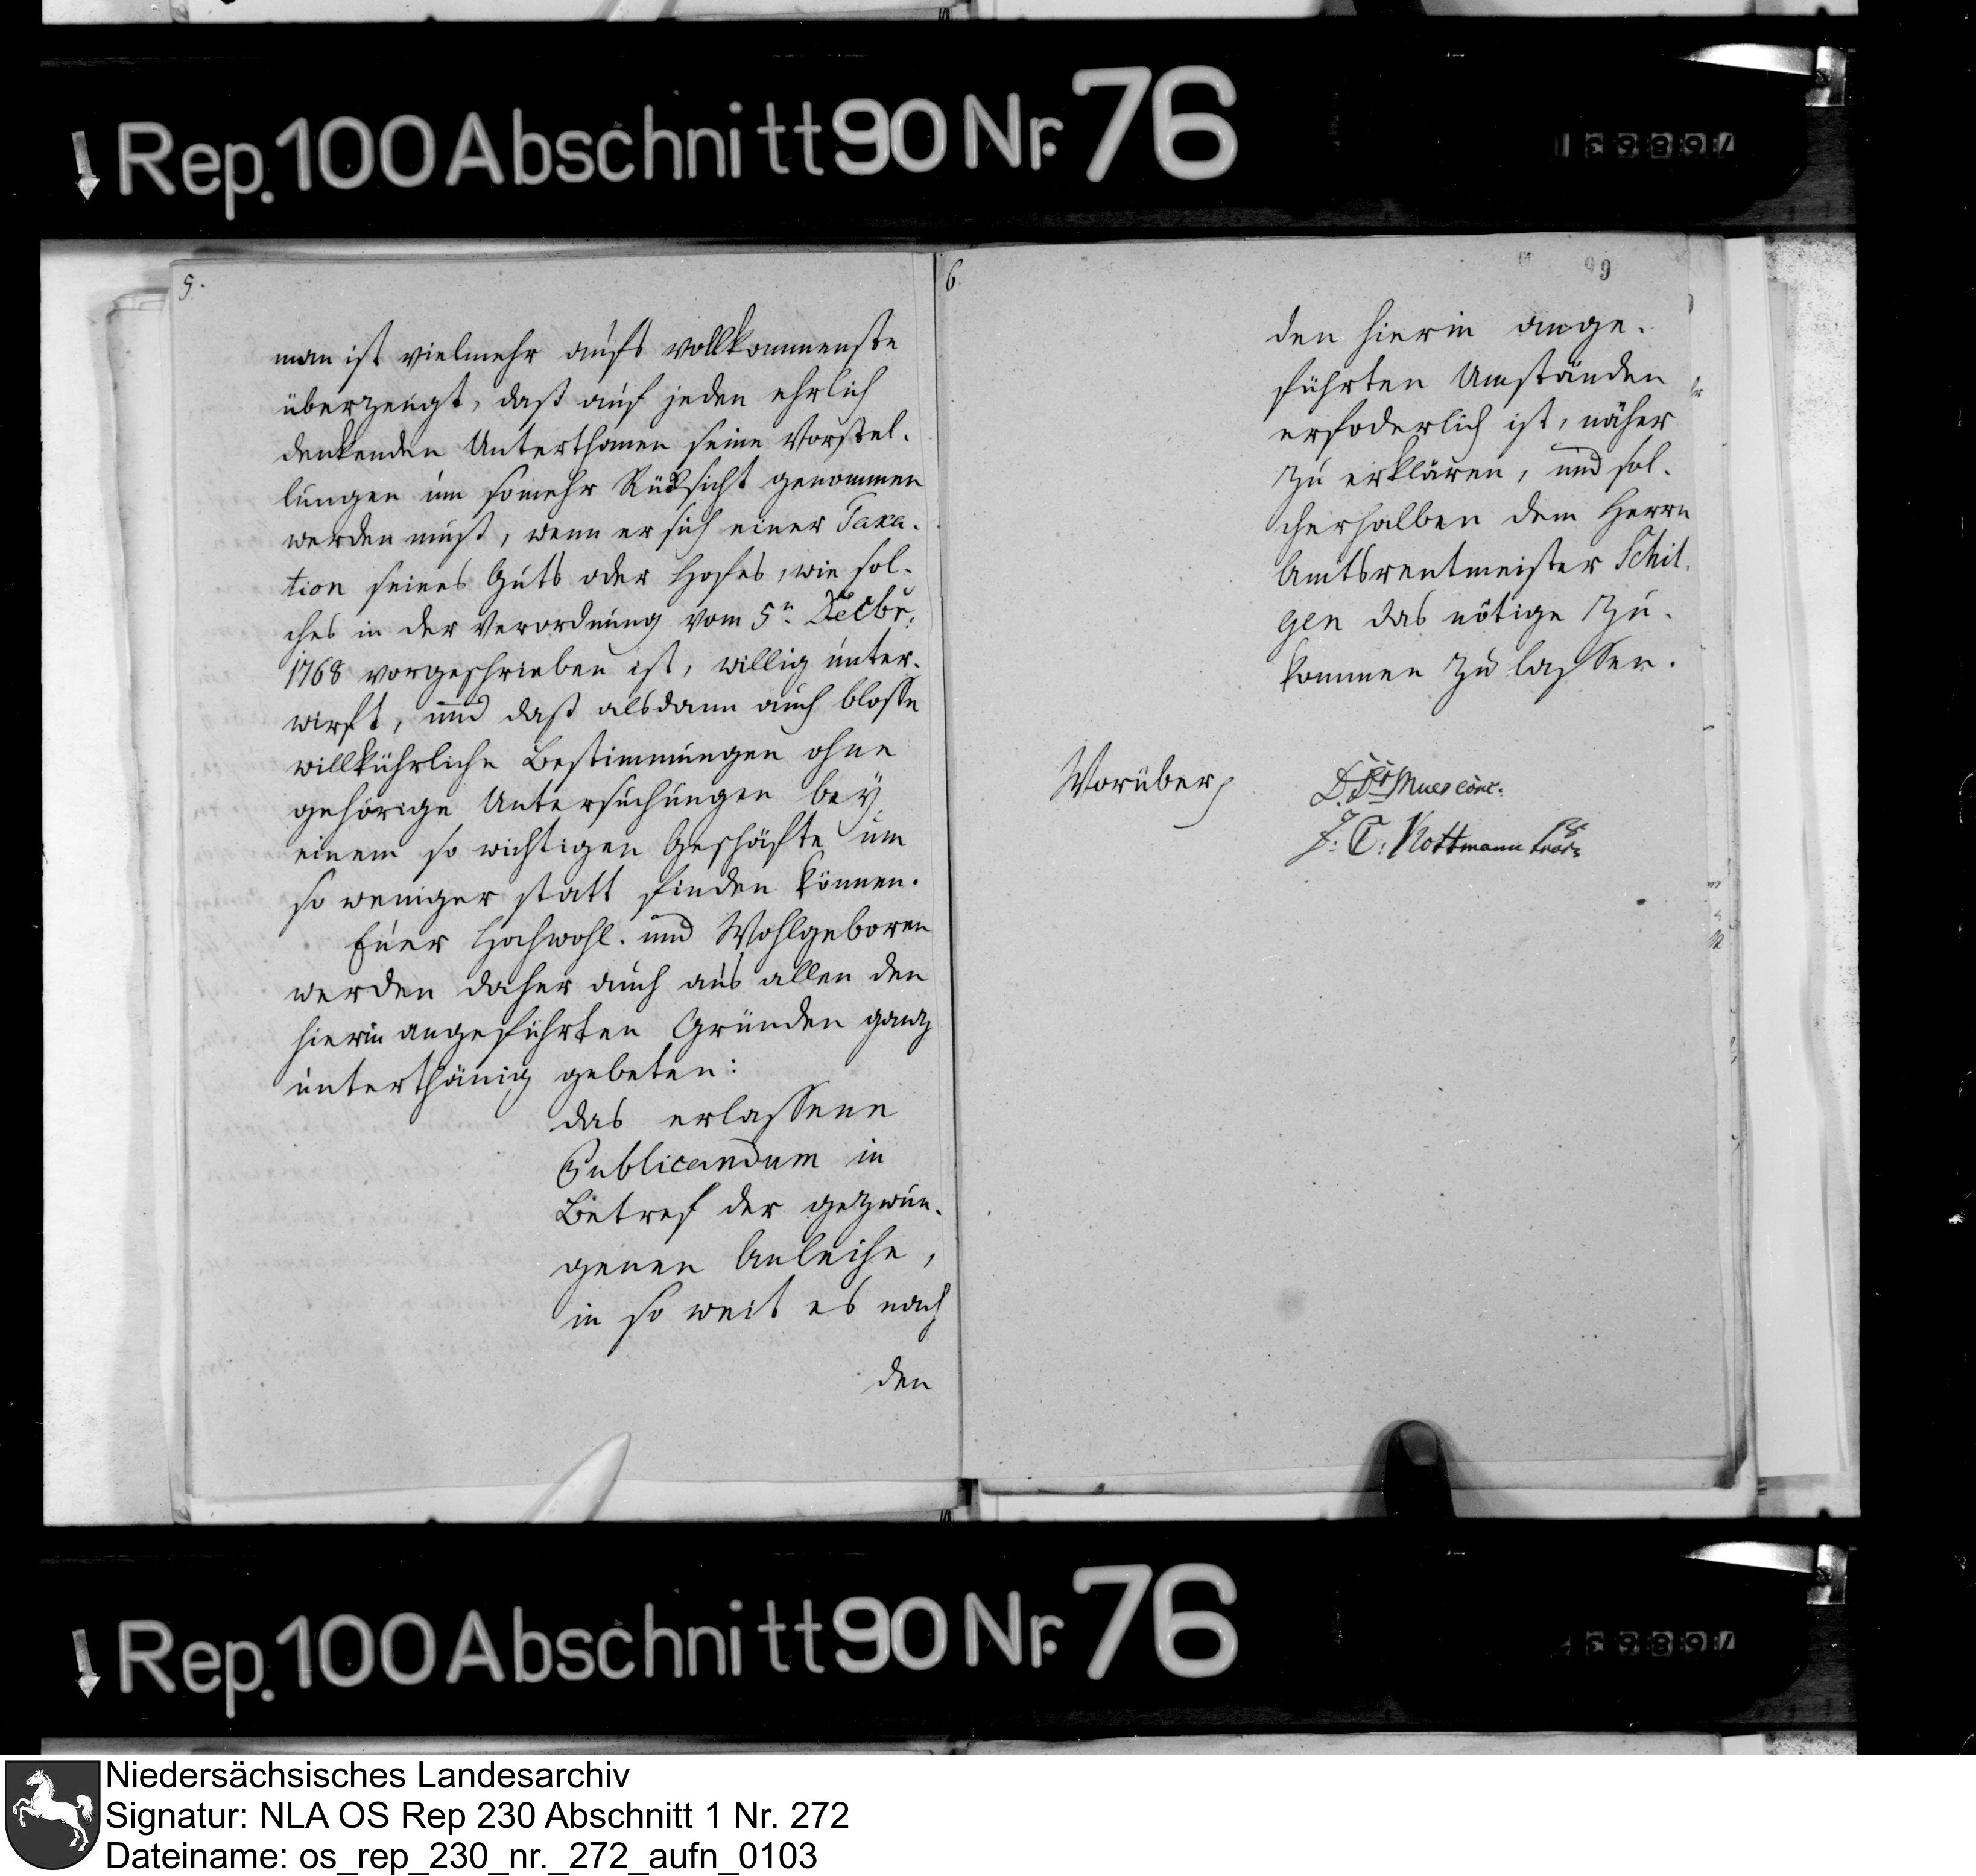 Rep. 100 Abschnitt 90 Nr. 76
5.
man ist vielmehr aufs vollkommenste
überzeugt, daß auf jeden ehrlich
denkenden Unterthanen seine Vorstel-
lungen um somehr Rüksicht genommen
werden muß, wenn er sich einer Taxa-
tion seines Guts oder Hofes, wie sol-
ches in der Verordnung vom 5n. Decbr:
1768 vorgeschrieben ist, willig unter-
wirft, und daß alsdann auch blosse
willkührliche Bestimmungen ohne
gehörige Untersuchungen bey
einem so wichtigen Geschäfte um
so weniger statt finden können.
Euer Hochwohl. und Wohlgeboren
werden daher auch aus allen den
hierin angeführten Gründen ganz
unterthänig gebeten:
das erlassene
Publicandum in
Betref der gezwun-
genen Anleihe,
in so weit es nach
den
6
99
den hierin ange-
führten Umständen
erfoderlich ist, näher
zu erklären, und sol-
cherhalben dem Herrn
Amtsrentmeister Schil-
gen das nötige zu-
kommen zu lassen.
Worüber
conc.
J. C. Nottmann
Rep. 100 Abschnitt 90 Nr. 76
Niedersächsisches Landesarchiv
Signatur: NLA OS Rep 230 Abschnitt 1 Nr. 272
Dateiname: os_rep_230_nr._272_aufn_0103